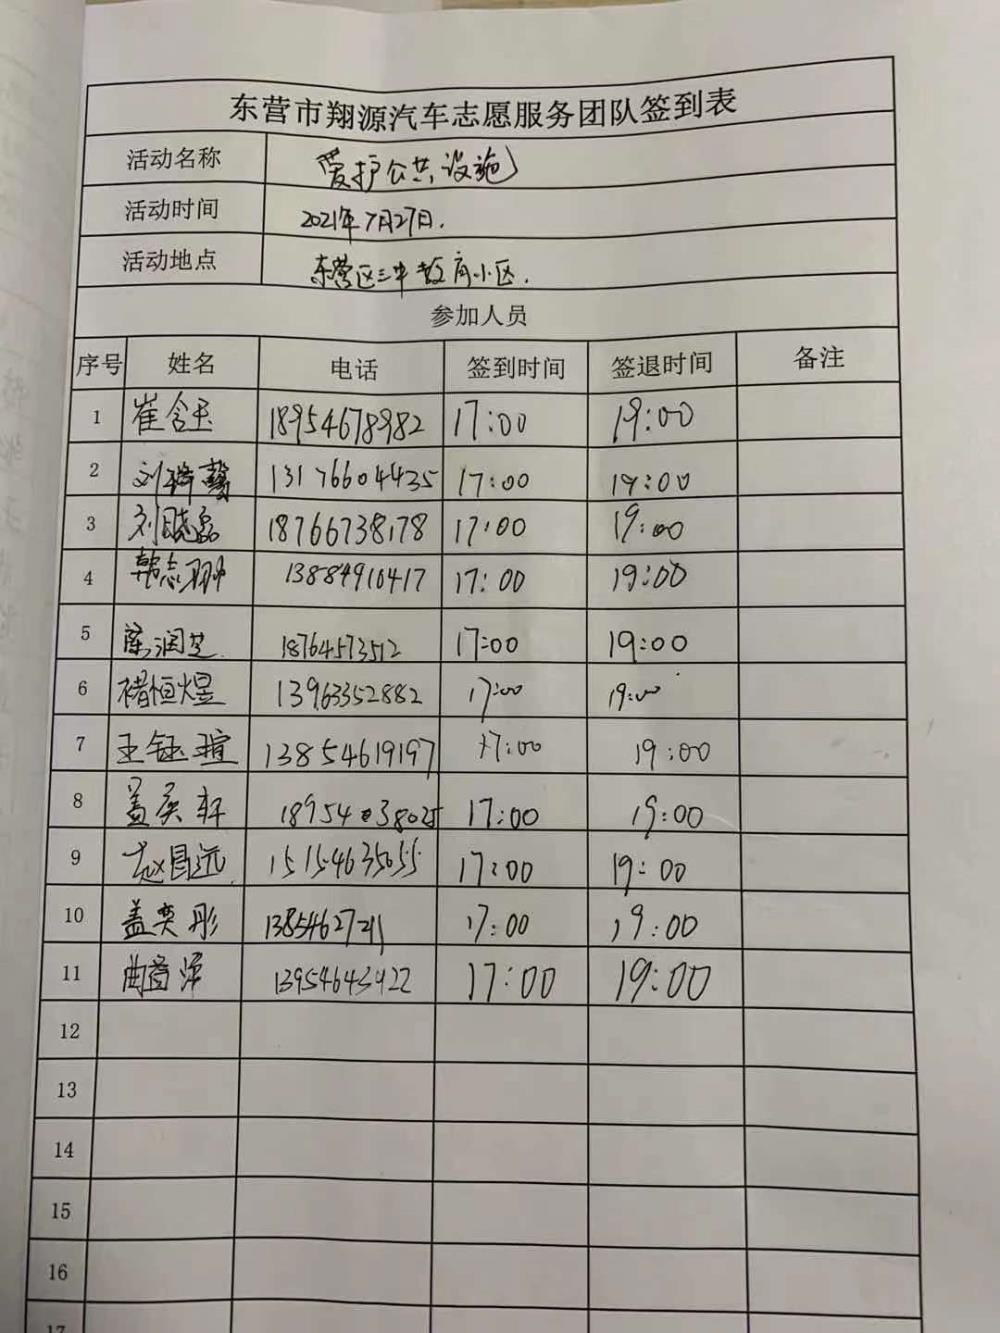 东营市翔源汽车志愿服务团队签到表
活动名称 爱护公共设施
活动时间 2021年7月27日.
活动地点 东营区三中教育小区.
参加人员
序号 姓名 电话 签到时间 签退时间 备注
1 崔含玉 18954678982 17:00 19:00
2 刘 13176604435 17:00 19:00
3 刘晓磊 18766738178 17:00 19:00
4 韩志翀 13884910417 17:00 19:00
5 陈润芝 18764573512 17:00 19:00
6 褚恒煜 13963352882 17:00 19:00
7 王钰瑄 13854619197 17:00 19:00
8 盖奕轩 17:00 19:00
9 赵昌远 15154635055 17:00 19:00
10 盖奕彤 13854627211 17:00 19:00
11 曲 17:00 19:00
12
13
14
15
16
17